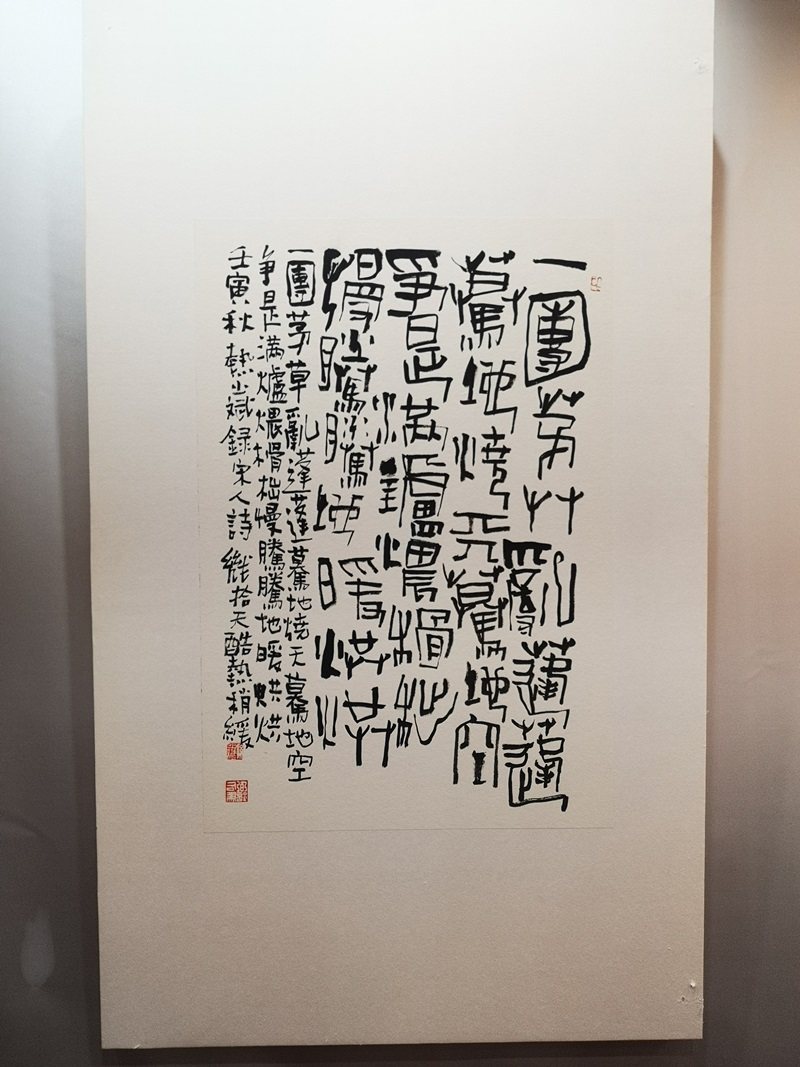 一團茅艸亂蓬蓬
驀地燒天驀地空
爭是滿爐煨榾柮
慢騰騰地暖烘烘
一團茅草亂蓬蓬驀地燒天驀地空
争是满爐煨榾柮慢騰騰地暖烘烘
壬寅秋熱小斌錄宋人詩幾拾天酷熱稍緩